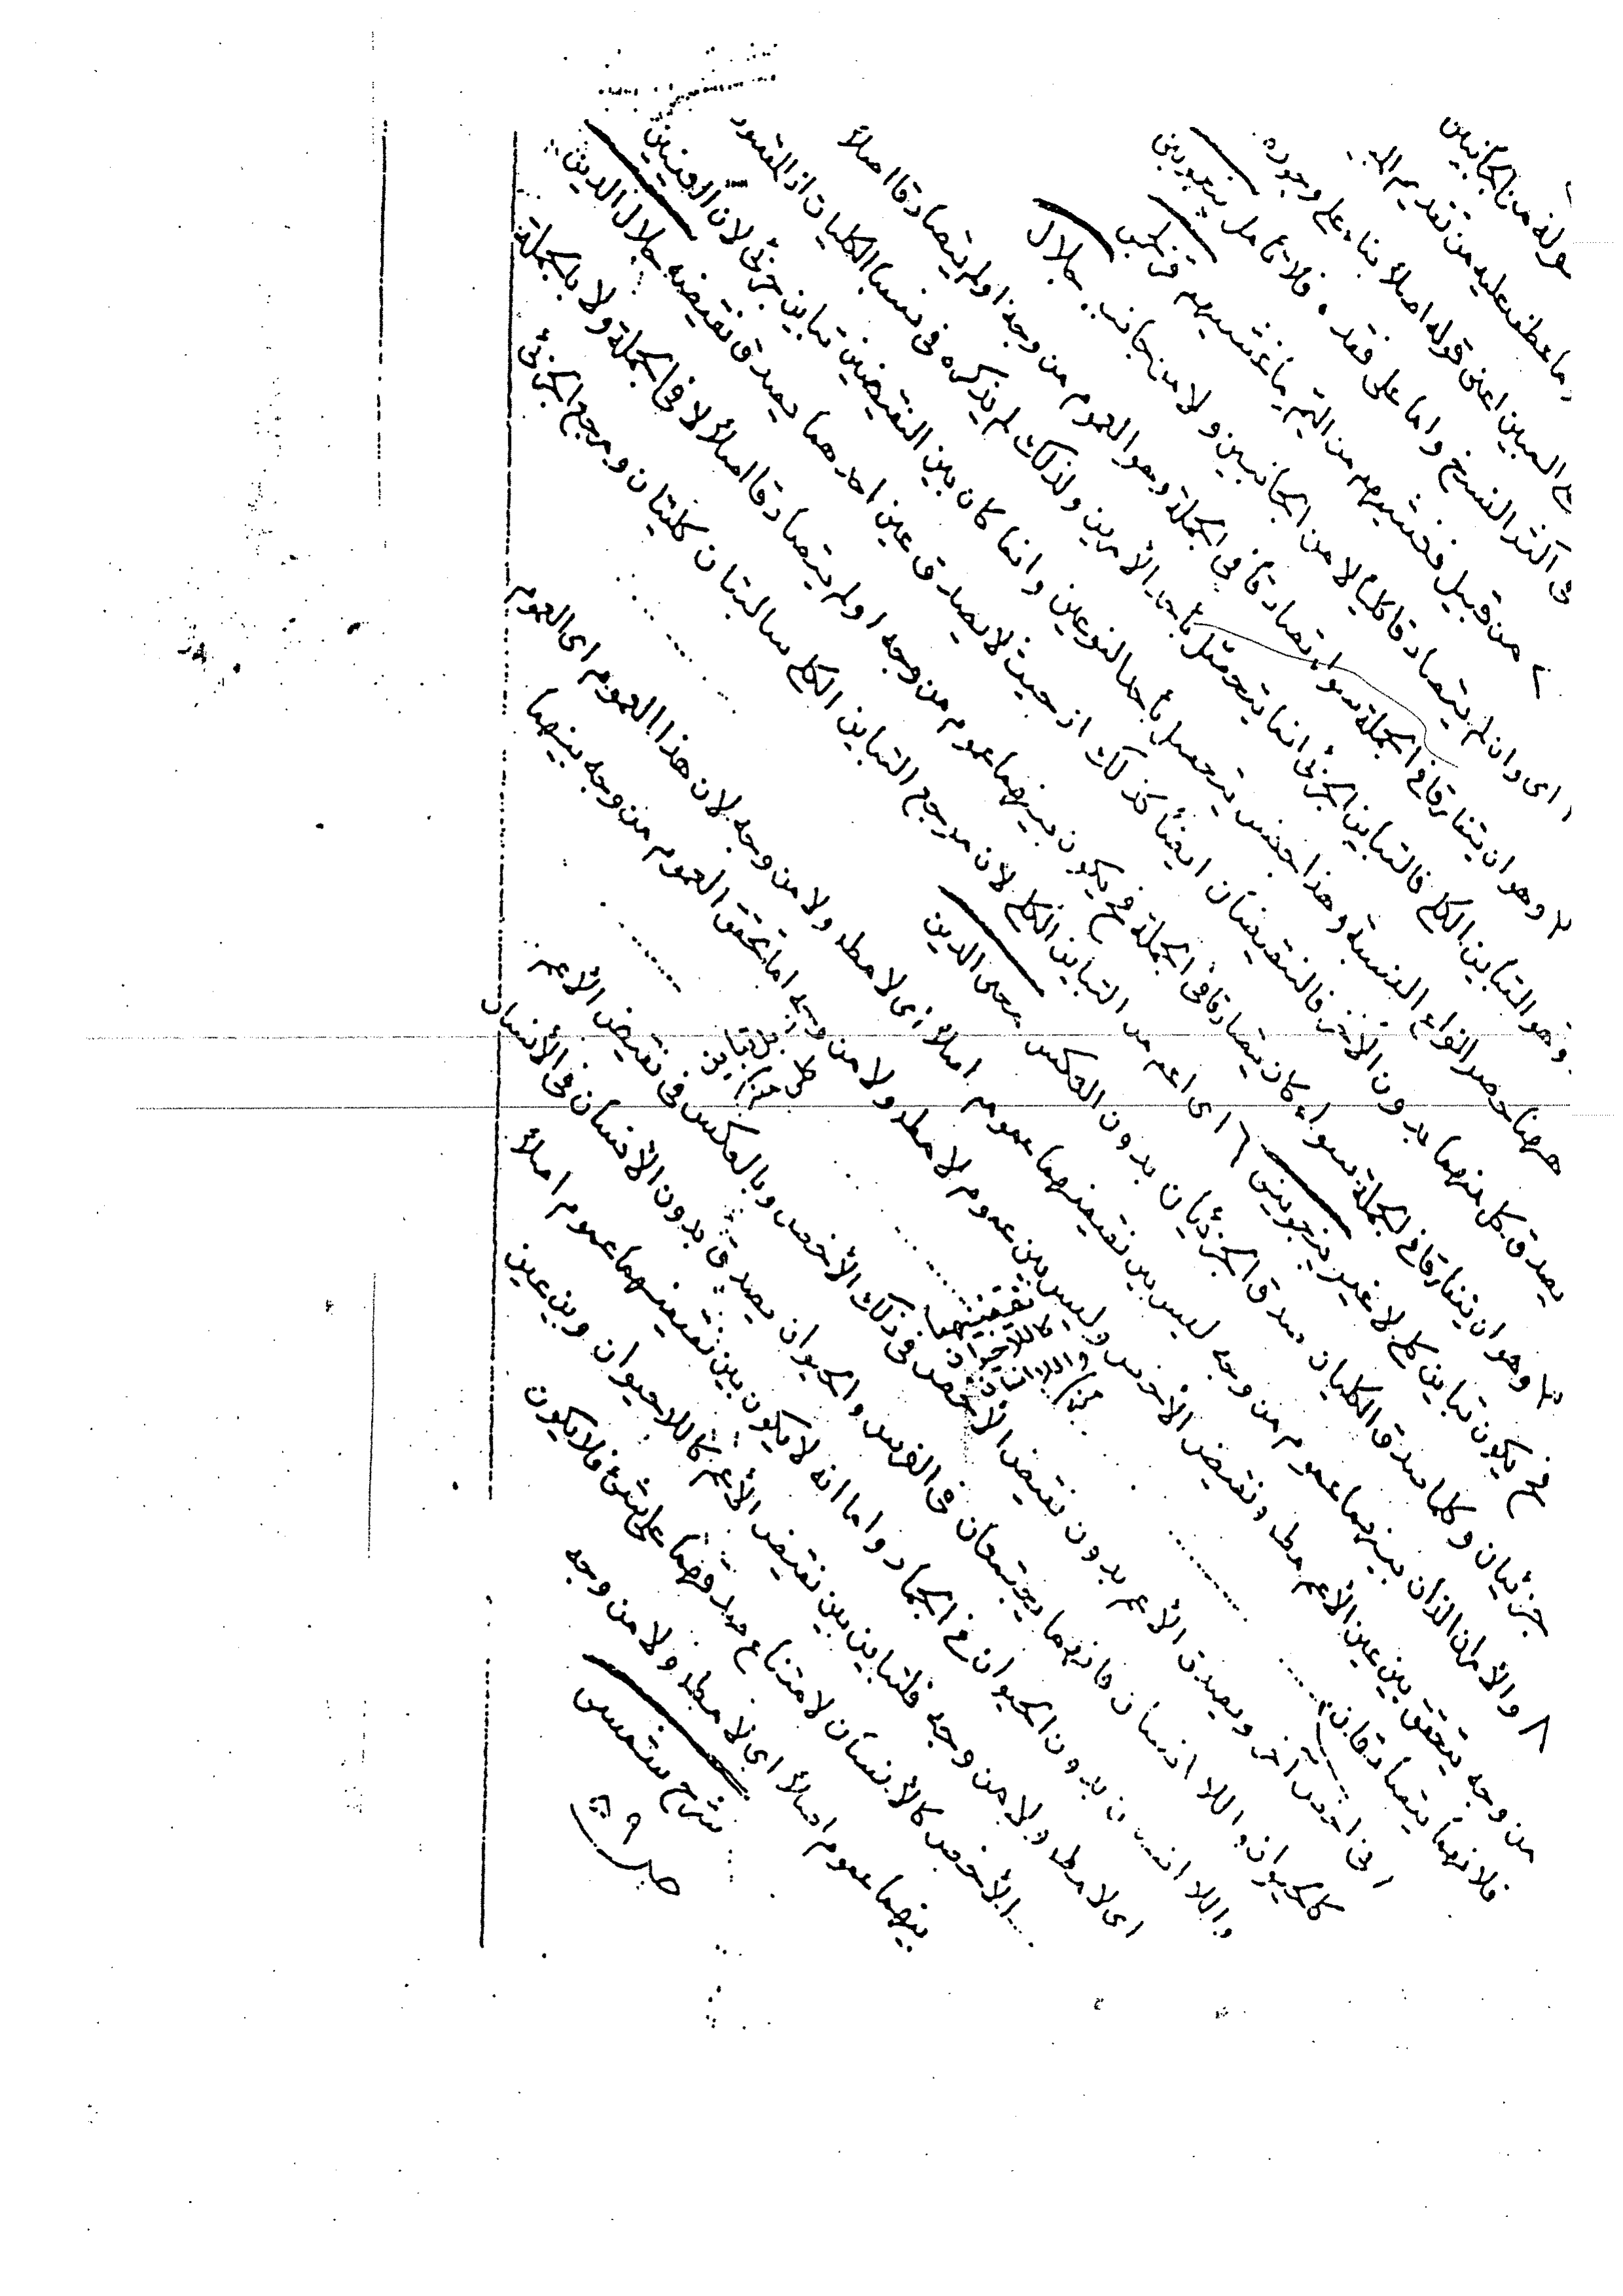 قوله من الجانبين
ما عطف عليه من تقديم
المبين اعنى قوله اصلاً بناء على وجوده
فى اكثر النسخ واما على فقد فلا تأمل پنجوينى
من قبيل فغشيهم من اليم ما غشيهم قزلجى
اى وان لم يتصادقا كليا لا من الجانبين ولا من جانب جلال
٢ وهو ان يتفارقا فى الجملة سواء تصادقا فى الجملة وهو العموم من وجه او لم يتصادقا اصلاً
وهو التباين الكلى فالتباين الجزئى انما يتحصل بأحد الأمرين ولذلك لم يذكره فى نسب الكليات اذ المقصود
ههنا حصر انواع النسبة وهذا جنس يتحصل بأحد النوعين وانما كان بين النقيضين تباين جزئى لان العينين
يصدق كل منهما بدون الآخر فالنقيضان ايضاً كذلك اذ حيث لا يصدق عين احدهما يصدق نقيضه جلال الدين
٣ وهو ان يتفارقا فى الجملة سواء كان يتصادقا فى الجملة فح يكون بينهما عموم من وجه او لم يتصادقا اصلاً لا فى الجملة ولا بالجملة
فح يكون تباين كلى لا غير پنجوينى ٦ اى اعم من التباين الكلى لأن مرجع التباين الكلى سالبتان كليتان ومرجع الجزئى
جزئيان وكلما صدق الكليان صدق الجزئيان بدون العكس محى الدين
٨ والأمران اللذان بينهما عموم من وجه ليس بين نقيضيهما عموم اصلاً اى لا مط ولا من وجه لان هذا العموم اى العموم
من وجه يتحقق بين عين الأعم مط ونقيض الأخص وليس بين عموم لا مط ولا من وجه اما تحقق العموم من وجه بينهما
فلأنهما يتصادقان
فى اخص آخر ويصدق الأعم بدون نقيض الأخص فى ذلك الأخص وبالعكس فى نقيض الأعم
كالحيوان واللا انسان فانهما يجتمعان فى الفرس والحيوان يصدق بدون الأنسان فى الأنسان
واللا انسان بدون الحيوان فى الجماد واما انه لا يكون بين نقيضيهما عموم اصلاً
اى لا مط ولا من وجه فلتباين بين نقيض الأعم كاللاحيوان وبين عين
الأخص كالأنسان لامتناع صدقهما على شئ فلا يكون
بينهما عموم اصلاً اى لا مط ولا من وجه
شرح شمس
ص ٥٩